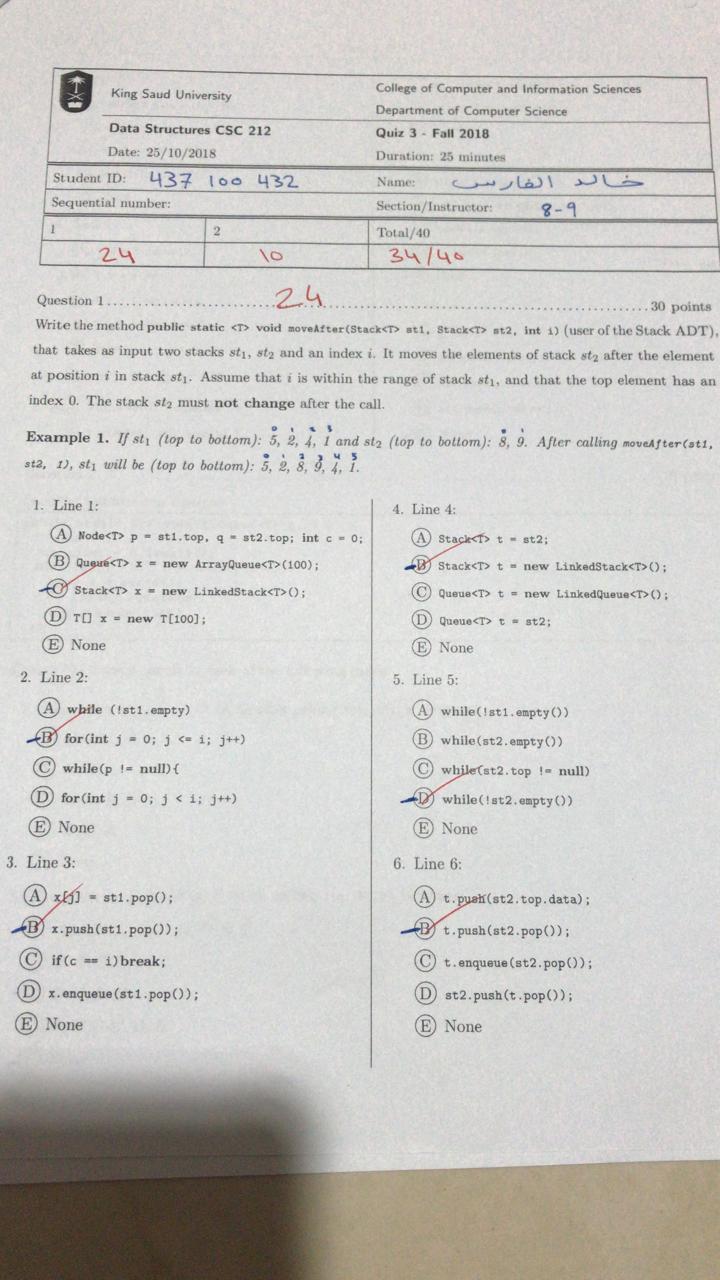 King Saud University
College of Computer and Information Sciences
Department of Computer Science
Data Structures CSC 212
Quiz 3 - Fall 2018
Date: 25/10/2018
Duration: 25 minutes
Student ID: 437 100 432
Name: خالد الفارس
Sequential number:
Section/Instructor: 8-9
1 2 Total/40
24 10 34/40
Question 1 ........ 24 ........ 30 points
Write the method public static <T> void moveAfter(Stack<T> st1, Stack<T> st2, int i) (user of the Stack ADT),
that takes as input two stacks st1, st2 and an index i. It moves the elements of stack st2 after the element
at position i in stack st1. Assume that i is within the range of stack st1, and that the top element has an
index 0. The stack st2 must not change after the call.
0 1 2 3 0 1
Example 1. If st1 (top to bottom): 5, 2, 4, 1 and st2 (top to bottom): 8, 9. After calling moveAfter(st1,
0 1 2 3 4 5
st2, 1), st1 will be (top to bottom): 5, 2, 8, 9, 4, 1.
1. Line 1:
A Node<T> p = st1.top, q = st2.top; int c = 0;
B Queue<T> x = new ArrayQueue<T>(100);
C Stack<T> x = new LinkedStack<T>();
D T[] x = new T[100];
E None
2. Line 2:
A while (!st1.empty)
B for(int j = 0; j <= i; j++)
C while(p != null){
D for(int j = 0; j < i; j++)
E None
3. Line 3:
A x[j] = st1.pop();
B x.push(st1.pop());
C if(c == i)break;
D x.enqueue(st1.pop());
E None
4. Line 4:
A Stack<T> t = st2;
B Stack<T> t = new LinkedStack<T>();
C Queue<T> t = new LinkedQueue<T>();
D Queue<T> t = st2;
E None
5. Line 5:
A while(!st1.empty())
B while(st2.empty())
C while(st2.top != null)
D while(!st2.empty())
E None
6. Line 6:
A t.push(st2.top.data);
B t.push(st2.pop());
C t.enqueue(st2.pop());
D st2.push(t.pop());
E None